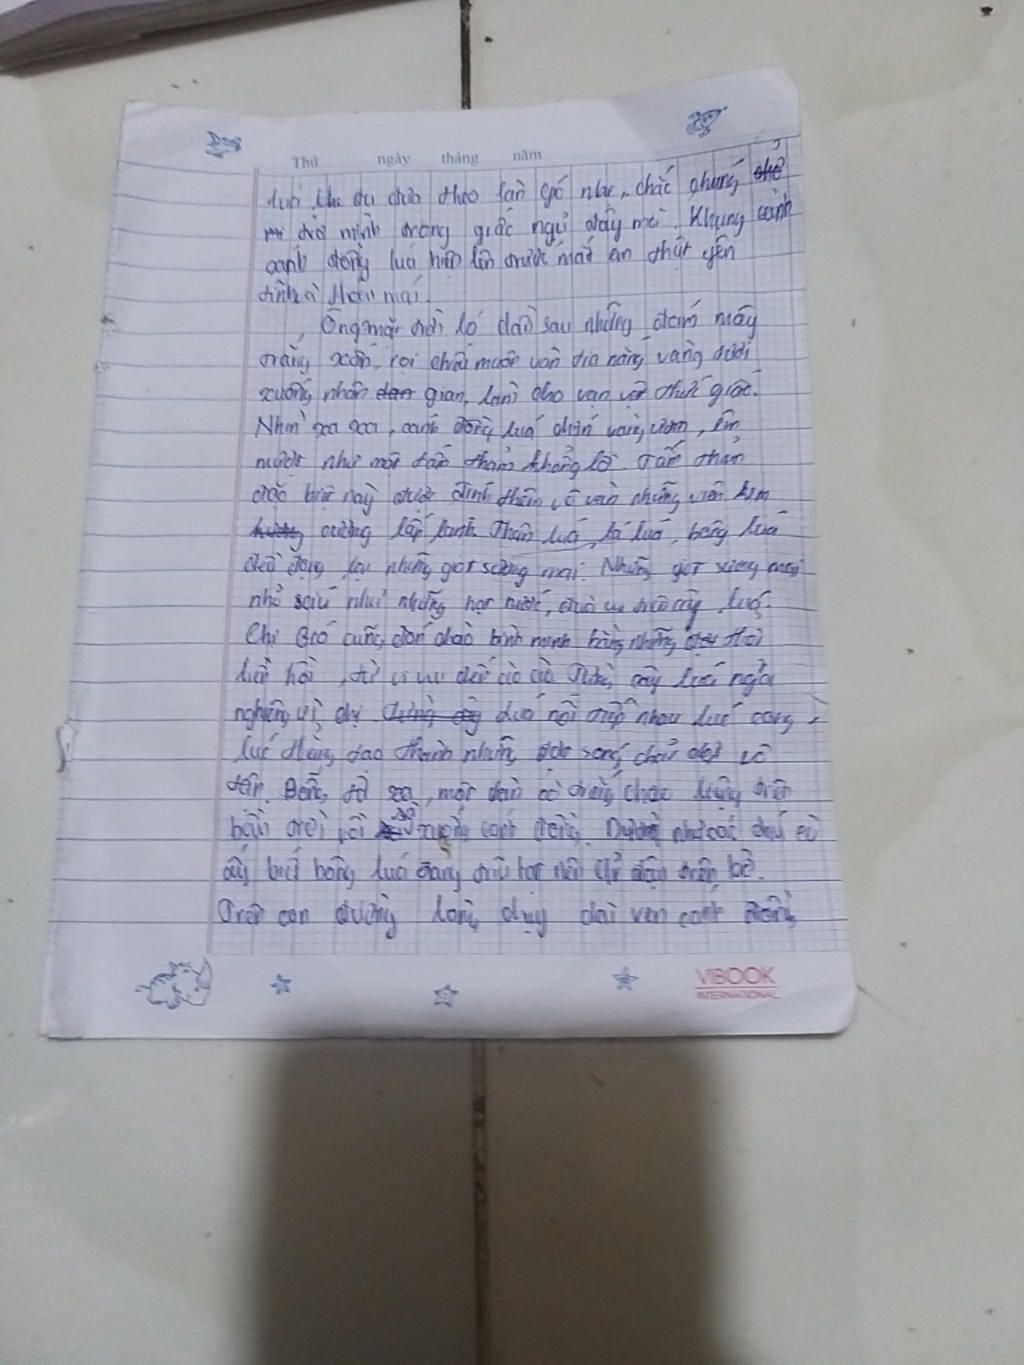 Thứ ngày tháng năm
đu đưa theo làn gió nhẹ, chắc chúng
mình trong giấc ngủ đấy mà. Khung cảnh
cánh đồng lúa hiện lên trước mắt em thật yên
Ông mặt trời ló dần sau những đám mây
trắng xốp, rọi chiếu muôn vàn tia nắng vàng tươi
xuống nhân gian, làm cho vạn vật thức giấc.
Nhìn xa xa, cánh đồng lúa chín vàng ươm, êm
mượt như một tấm thảm khổng lồ. Tấm thảm
đặc biệt này được đính thêm vô vàn những viên kim
cương lấp lánh. Thân lúa, lá lúa, bông lúa
đều đọng lại những giọt sương mai. Những giọt sương mai
nhỏ xíu như những hạt nước, cây lúa.
Chị Gió cũng đón chào bình minh bằng những
liên hồi, từ vi vu đến rào rào. cây lúa ngả
nghiêng, nối tiếp nhau lúc cong
lúc thẳng tạo thành những đợt sóng vô
tận. Bỗng từ xa, một đàn cò trắng chao liệng trên
bầu trời rồi xuống cánh đồng. Dường như các chú cò
ấy biết bông lúa đang trĩu hạt nên chỉ đậu trên bờ.
Trên con đường làng chạy dài ven cánh đồng,
VIBOOK
INTERNATIONAL